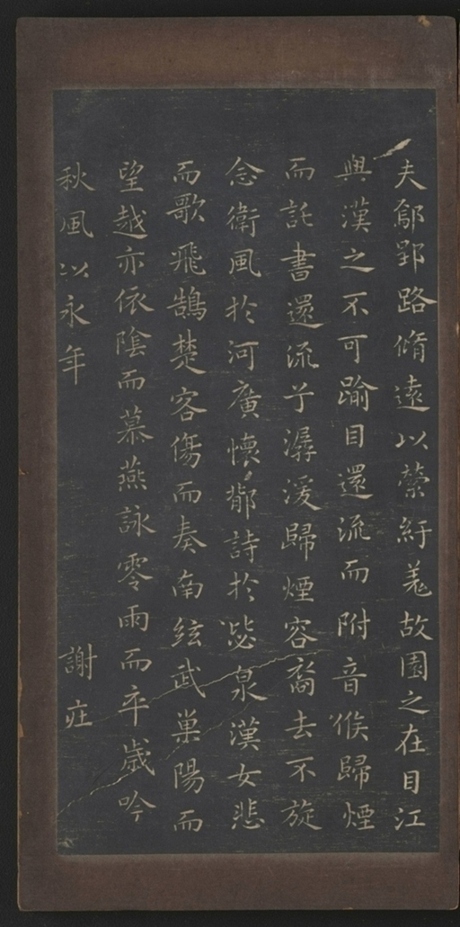 夫鄢郢路脩遠以縈紆羌故園之在目江
與漢之不可踰目還流而附音候歸煙
而託書還流兮潺湲歸煙容裔去不旋
念衛風於河廣懷鄁詩於毖泉漢女悲
而歌飛鵠楚客傷而奏南絃武巢陽而
望越亦依陰而慕燕詠零雨而卒歲吟
秋風以永年
謝莊